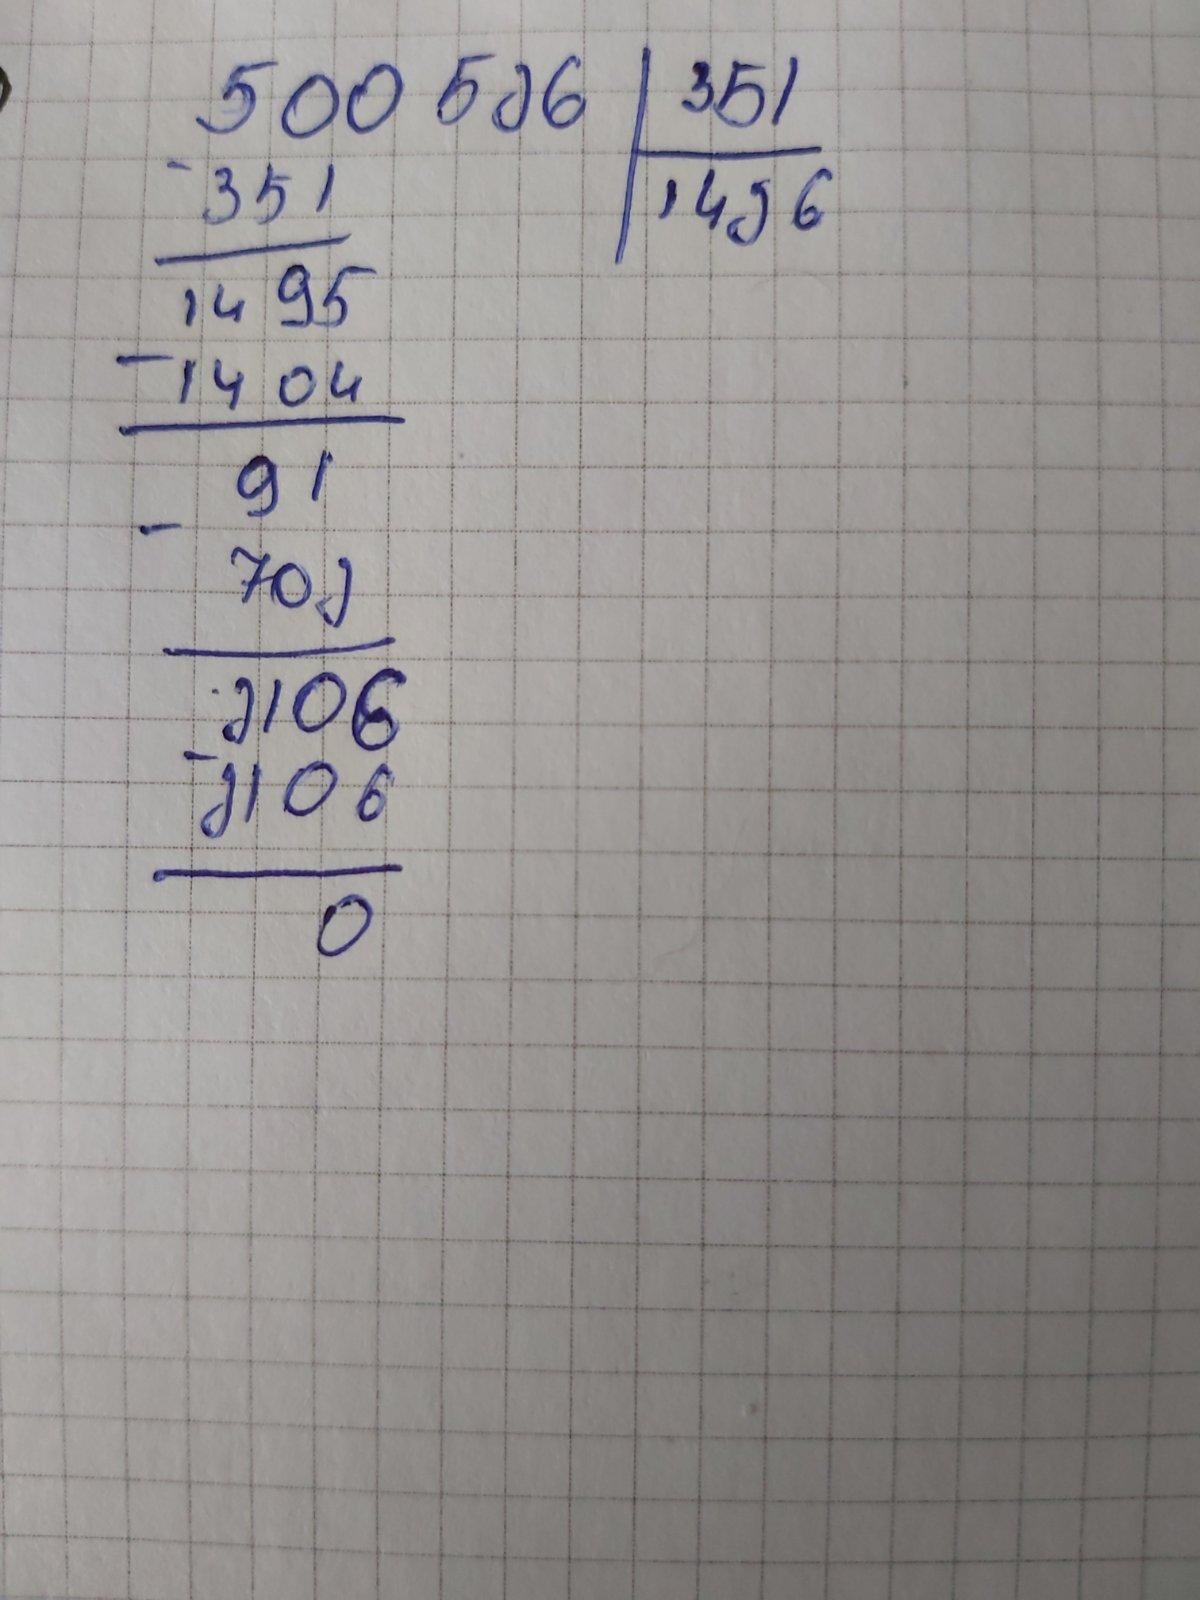 500 526 | 351
- 351 | 1426
1495
- 1404
91
- 702
2106
- 2106
0